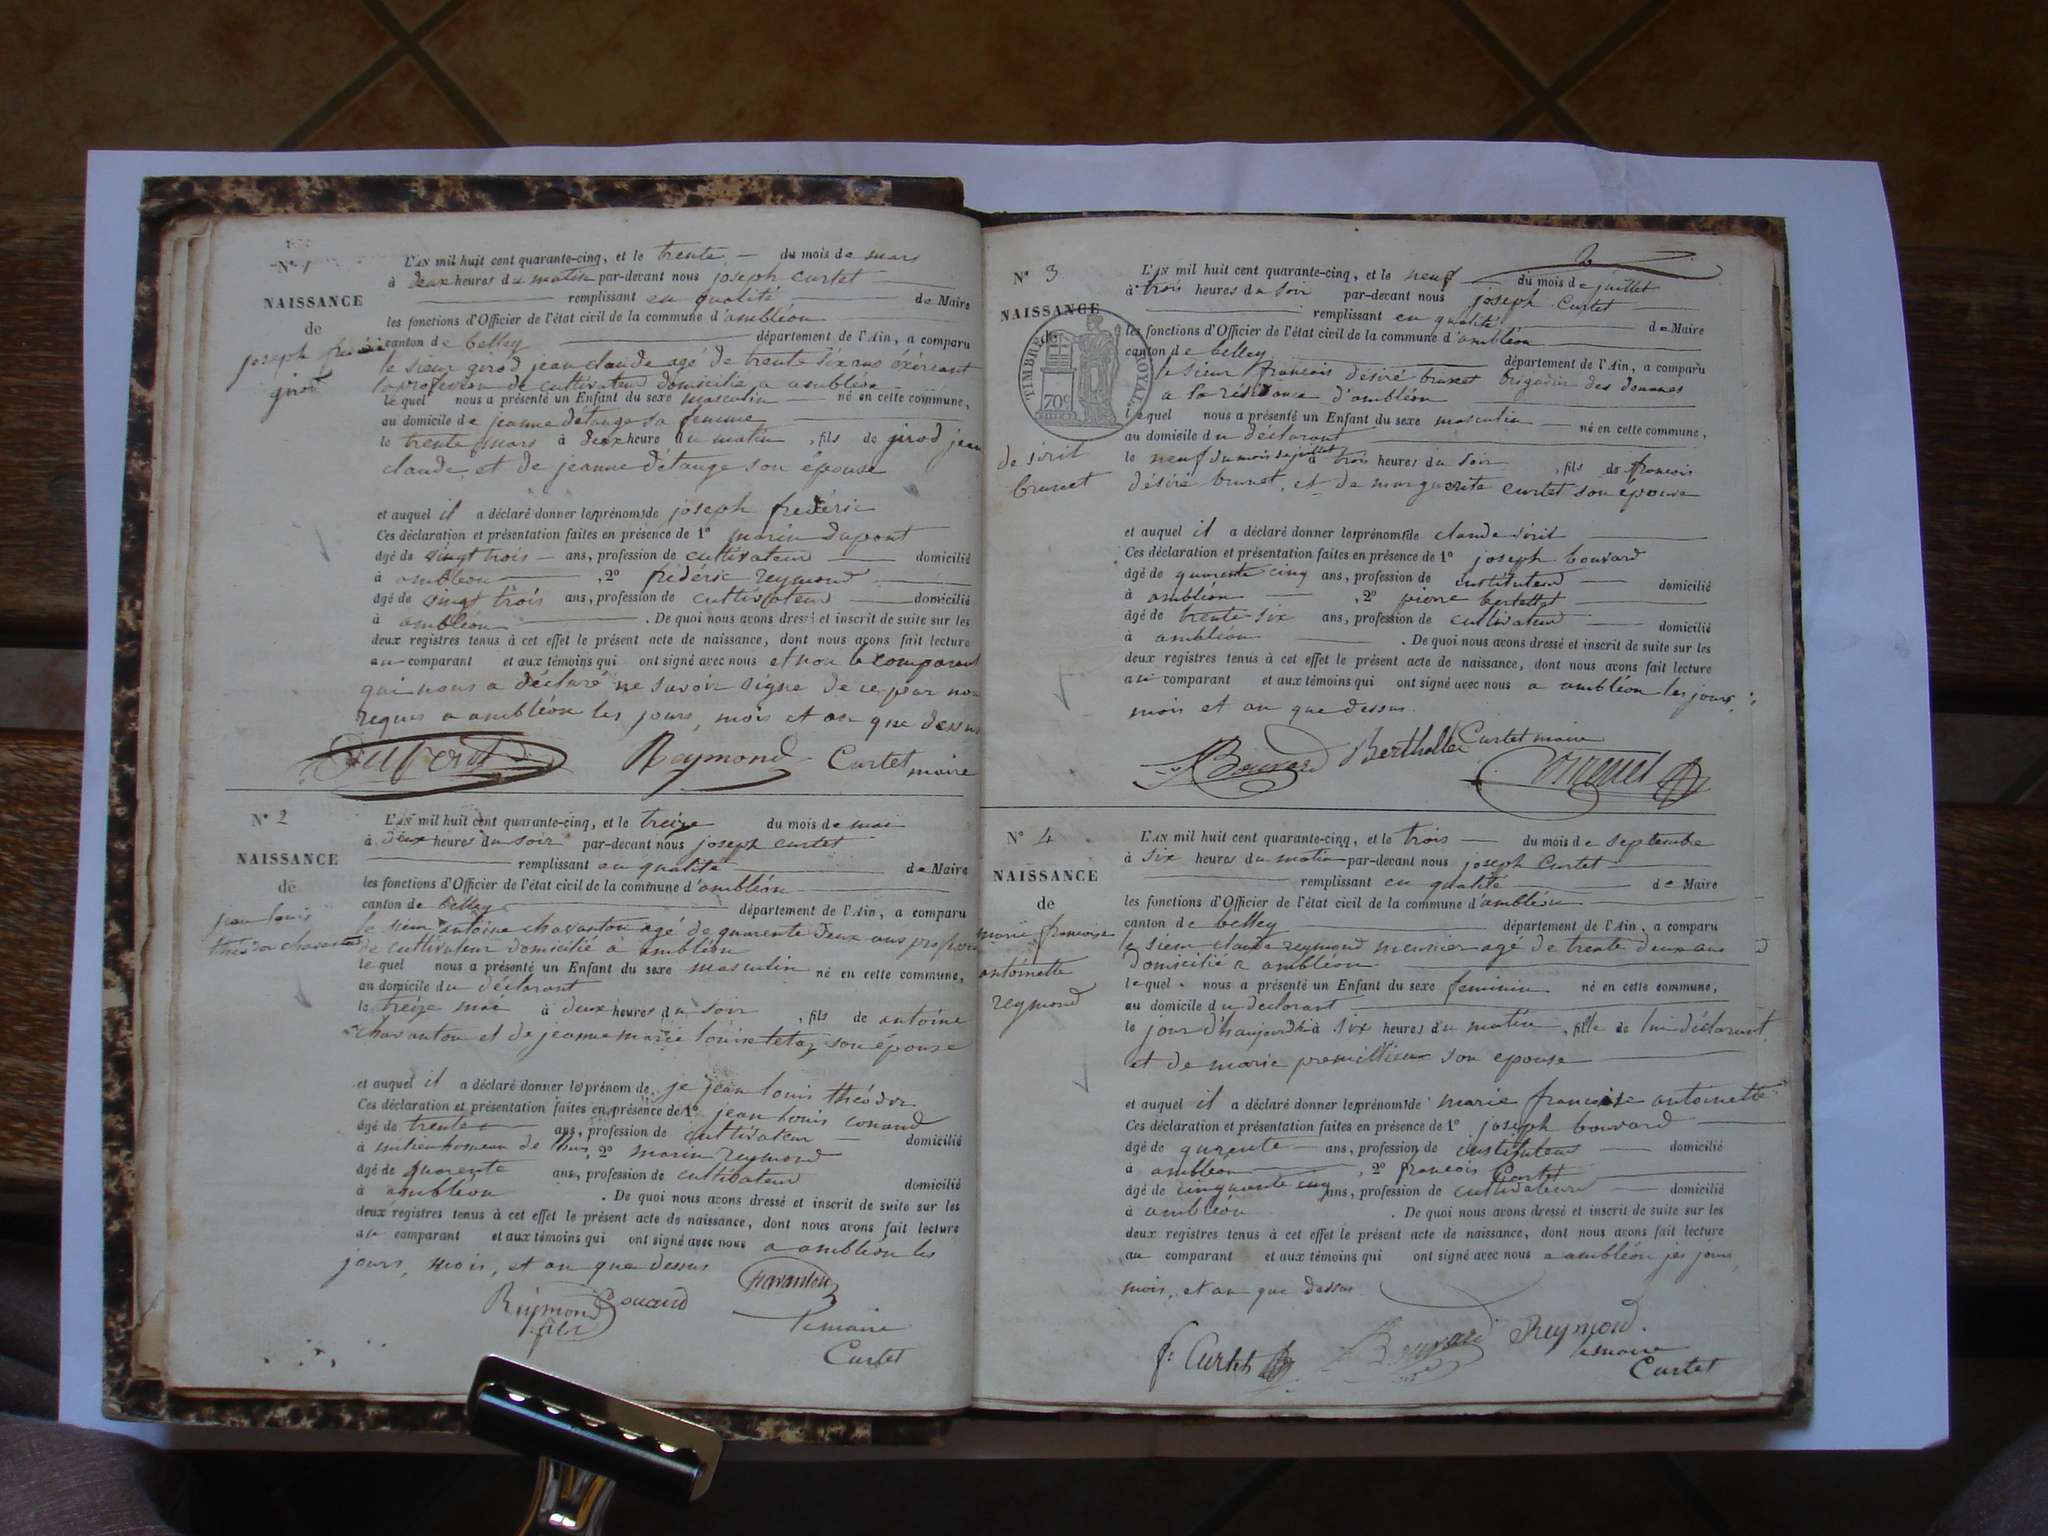 N° 1
NAISSANCE
de
joseph frédéric
girod
L'AN mil huit cent quarante-cinq, et le trente du mois de mars
à deux heures du matin par-devant nous joseph curtet
remplissant en qualité de Maire
les fonctions d'Officier de l'état civil de la commune d'ambléon
canton de belley département de l'Ain, a comparu
le sieur girod jean claude agé de trente six ans éxerçant
la profession de cultivateur domicilié a ambléon
le quel nous a présenté un Enfant du sexe masculin né en cette commune,
au domicile de jeanne détange sa femme
le trente mars à deux heure du matin , fils de girod jean
claude et de jeanne détange son épouse
et auquel il a déclaré donner les prénoms de joseph frédéric
Ces déclaration et présentation faites en présence de 1° marin dupont
âgé de vingt trois ans, profession de cultivateur domicilié
à ambléon , 2° frédéric reymond
âgé de vingt trois ans, profession de cultivateur domicilié
à ambléon . De quoi nous avons dressé et inscrit de suite sur les
deux registres tenus à cet effet le présent acte de naissance, dont nous avons fait lecture
au comparant et aux témoins qui ont signé avec nous et non le comparant
qui nous a déclaré ne savoir signe de ce par nous
requis a ambléon les jours, mois et an que dessus
Reymond Curtet maire
N° 2
NAISSANCE
de
jean louis
théodor chavanton
L'AN mil huit cent quarante-cinq, et le treize du mois de mai
à deux heures du soir par-devant nous joseph curtet
remplissant en qualité de Maire
les fonctions d'Officier de l'état civil de la commune d'ambléon
canton de belley département de l'Ain, a comparu
le sieur antoine chavanton agé de quarente deux ans profession
de cultivateur domicilié à ambléon
le quel nous a présenté un Enfant du sexe masculin né en cette commune,
au domicile du déclarant
le treize mai à deux heures du soir , fils de antoine
chavanton et de jeanne marie louise tetaz son épouse
et auquel il a déclaré donner les prénom de je jean louis théodor
Ces déclaration et présentation faites en présence de 1° jean louis conand
âgé de trente ans, profession de cultivateur domicilié
à de , 2° marin reymond
âgé de quarente ans, profession de cultivateur domicilié
à ambléon . De quoi nous avons dressé et inscrit de suite sur les
deux registres tenus à cet effet le présent acte de naissance, dont nous avons fait lecture
au comparant et aux témoins qui ont signé avec nous a ambléon les
jours, mois, et an que dessus
Chavanton
Reymond Conand
fils
le maire
Curtet
2
N° 3
NAISSANCE
de
TIMBRE ROYAL
70c
desirit
brunet
L'AN mil huit cent quarante-cinq, et le neuf du mois de juillet
à trois heures du soir par-devant nous joseph Curtet
remplissant en qualité de Maire
les fonctions d'Officier de l'état civil de la commune d'ambléon
canton de belley département de l'Ain, a comparu
le sieur françois désiré brunet brigadier des douanes
a la résidance d'ambléon
le quel nous a présenté un Enfant du sexe masculin né en cette commune,
au domicile du déclarant
le neuf du mois de juillet à trois heures du soir , fils de françois
désiré brunet, et de marguerite curtet son épouse
et auquel il a déclaré donner les prénoms de claude sirit
Ces déclaration et présentation faites en présence de 1° joseph bouvard
âgé de quarente cinq ans, profession de instituteur domicilié
à ambléon , 2° pierre bertollet
âgé de trente-six ans, profession de cultivateur domicilié
à ambléon . De quoi nous avons dressé et inscrit de suite sur les
deux registres tenus à cet effet le présent acte de naissance, dont nous avons fait lecture
au comparant et aux témoins qui ont signé avec nous a ambléon les jours,
mois et an que dessus.
Bouvard Berthollet Curtet maire
N° 4
NAISSANCE
de
marie françoise
antoinette
reymond
L'AN mil huit cent quarante-cinq, et le trois du mois de septembre
à six heures du matin par-devant nous joseph Curtet
remplissant en qualité de Maire
les fonctions d'Officier de l'état civil de la commune d'ambléon
canton de belley département de l'Ain, a comparu
le sieur claude reymond meunier agé de trente deux ans
domicilié a ambléon
le quel nous a présenté un Enfant du sexe feminin né en cette commune,
au domicile du declarant
le jour d'haujourd'hi à six heures du matin , fille de lui déclarant,
et de marie premillieu son epouse
et auquel il a déclaré donner les prénoms de marie françoise antoinette
Ces déclaration et présentation faites en présence de 1° joseph bouvard
âgé de qurente ans, profession de instituteur domicilié
à ambléon , 2° françois Curtet
âgé de cinquante cinq ans, profession de cultivateur domicilié
à ambléon . De quoi nous avons dressé et inscrit de suite sur les
deux registres tenus à cet effet le présent acte de naissance, dont nous avons fait lecture
au comparant et aux témoins qui ont signé avec nous a ambléon jes jours
mois, et an que dessus
f: Curtet Bouvard Reymond.
le maire
Curtet